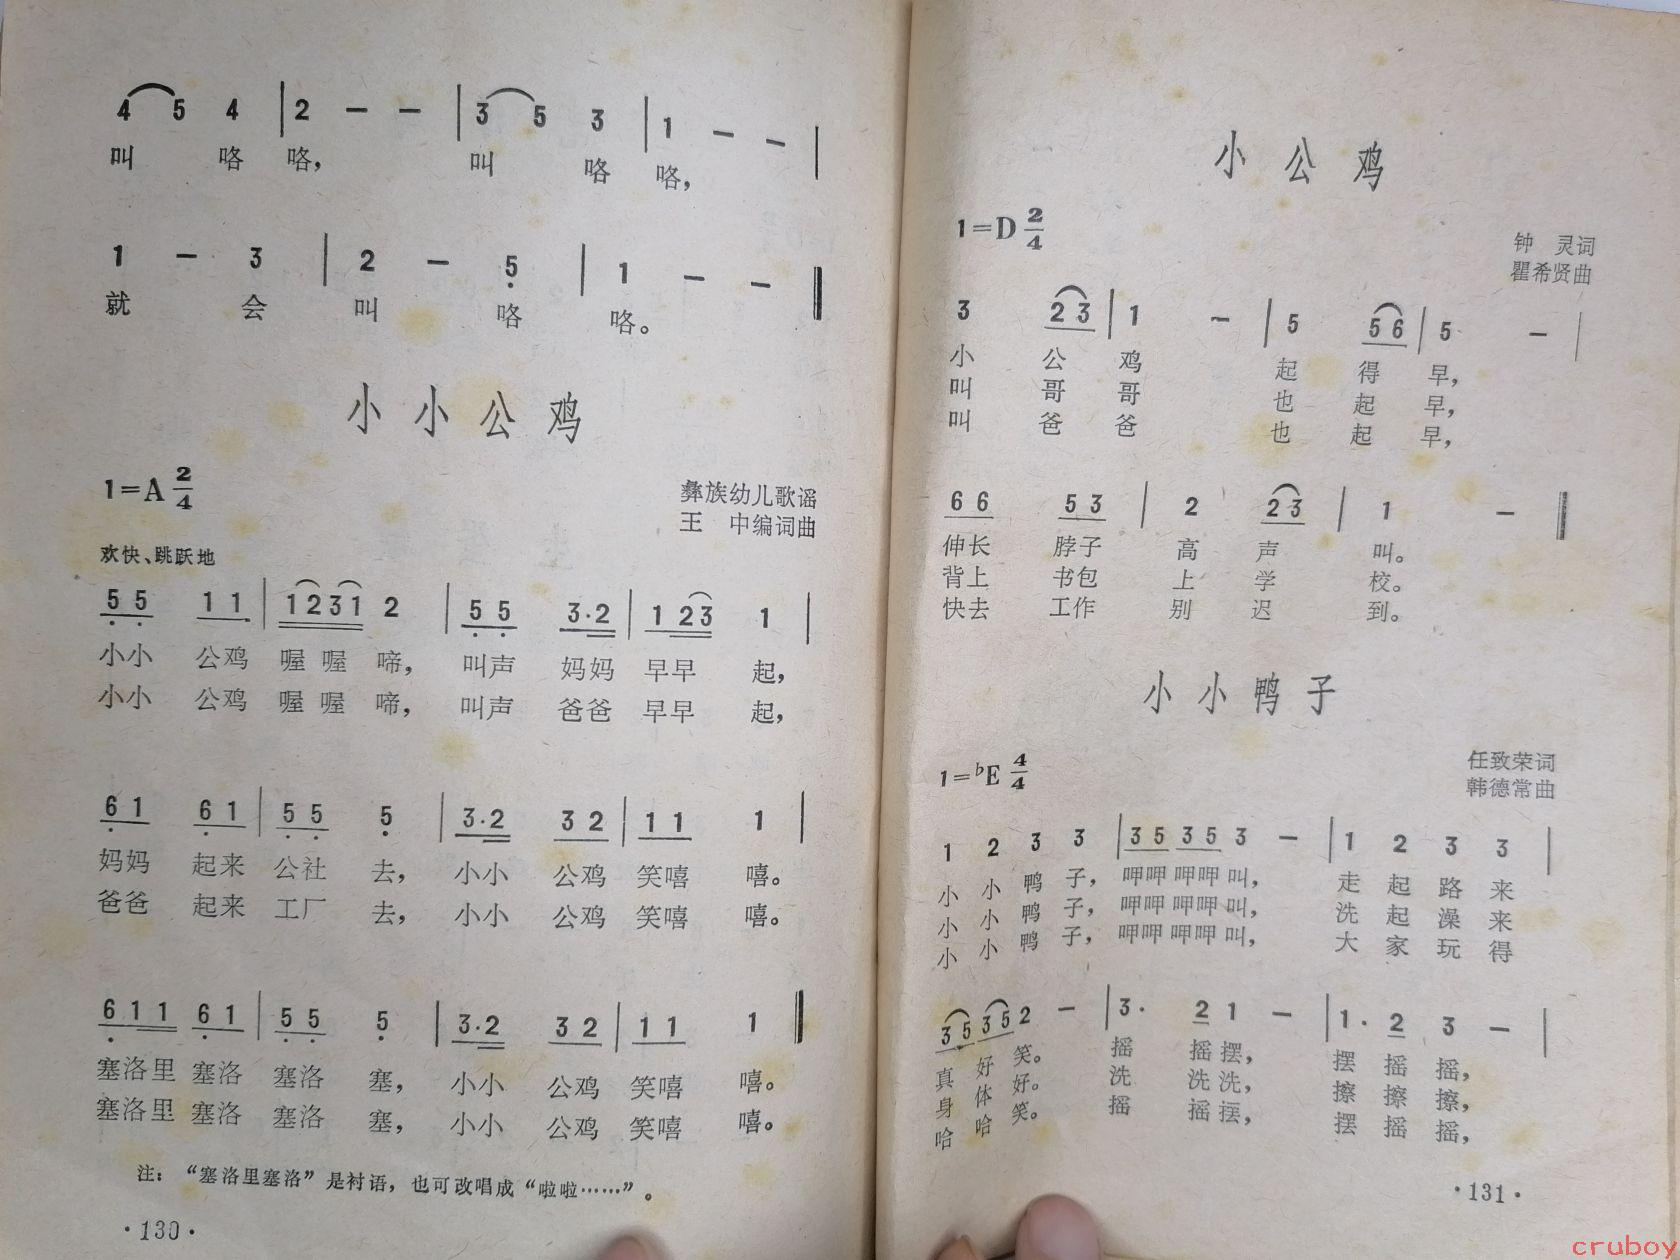 4 5 4 | 2 — — | 3 5 3 | 1 — — |
叫 咯 咯， 叫 咯 咯，
1 — 3 | 2 — 5 | 1 — — ‖
就 会 叫 咯 咯。
小小公鸡
1=A 2/4
彝族幼儿歌谣
王 中编词曲
欢快、跳跃地
5 5 1 1 | 1 2 3 1 2 | 5 5 3·2 | 1 2 3 1 |
小小 公鸡 喔 喔 啼， 叫声 妈妈 早早 起，
小小 公鸡 喔 喔 啼， 叫声 爸爸 早早 起，
6 1 6 1 | 5 5 5 | 3·2 3 2 | 1 1 1 |
妈妈 起来 公社 去， 小小 公鸡 笑嘻 嘻。
爸爸 起来 工厂 去， 小小 公鸡 笑嘻 嘻。
6 1 1 6 1 | 5 5 5 | 3·2 3 2 | 1 1 1 ‖
塞洛里 塞洛 塞洛 塞， 小小 公鸡 笑嘻 嘻。
塞洛里 塞洛 塞洛 塞， 小小 公鸡 笑嘻 嘻。
注：“塞洛里塞洛”是衬语，也可改唱成“啦啦……”。
·130·
小公鸡
1=D 2/4
钟 灵词
瞿希贤曲
3 2 3 | 1 — | 5 5 6 | 5 — |
小 公 鸡 起 得 早，
叫 哥 哥 也 起 早，
叫 爸 爸 也 起 早，
6 6 5 3 | 2 2 3 | 1 — ‖
伸长 脖子 高 声 叫。
背上 书包 上 学 校。
快去 工作 别 迟 到。
小小鸭子
1=♭E 4/4
任致荣词
韩德常曲
1 2 3 3 | 3 5 3 5 3 — | 1 2 3 3 |
小 小 鸭 子， 呷呷 呷呷 叫， 走 起 路 来
小 小 鸭 子， 呷呷 呷呷 叫， 洗 起 澡 来
小 小 鸭 子， 呷呷 呷呷 叫， 大 家 玩 得
3 5 3 5 2 — | 3· 2 1 — | 1· 2 3 — |
真 好 笑。 摇 摇 摆， 摆 摇 摇，
身 体 好。 洗 洗 洗， 擦 擦 擦，
哈 哈 笑。 摇 摇 摆， 摆 摇 摇，
·131·
cruboy